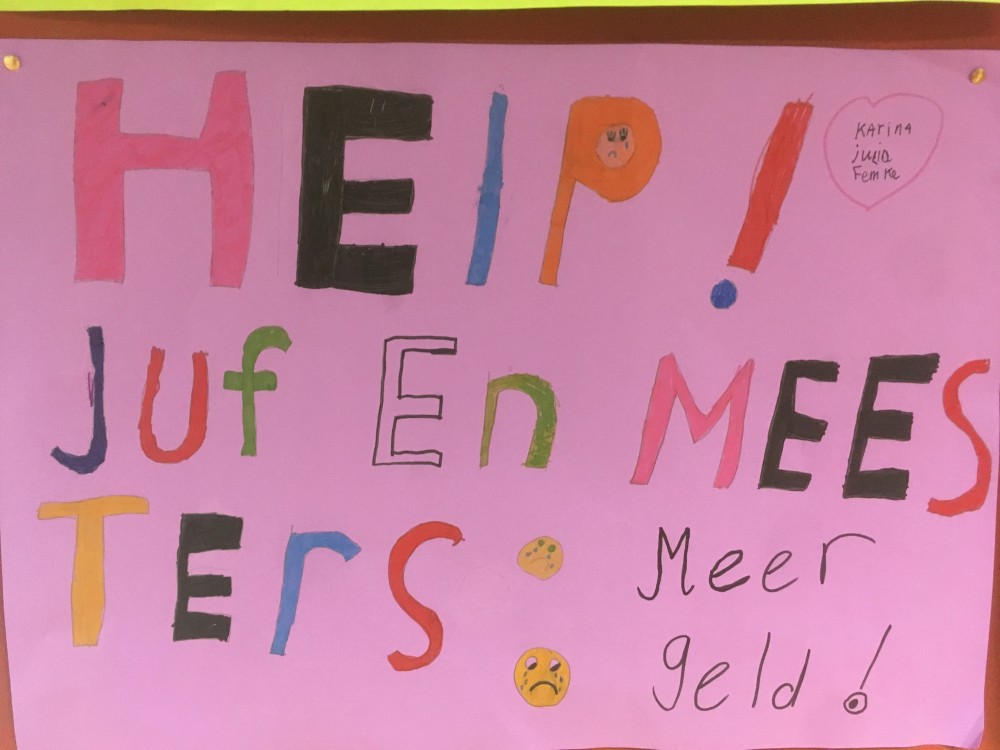 HElP!
Karina
julia
Femke
Juf En MEES
TErS
Meer
geld!